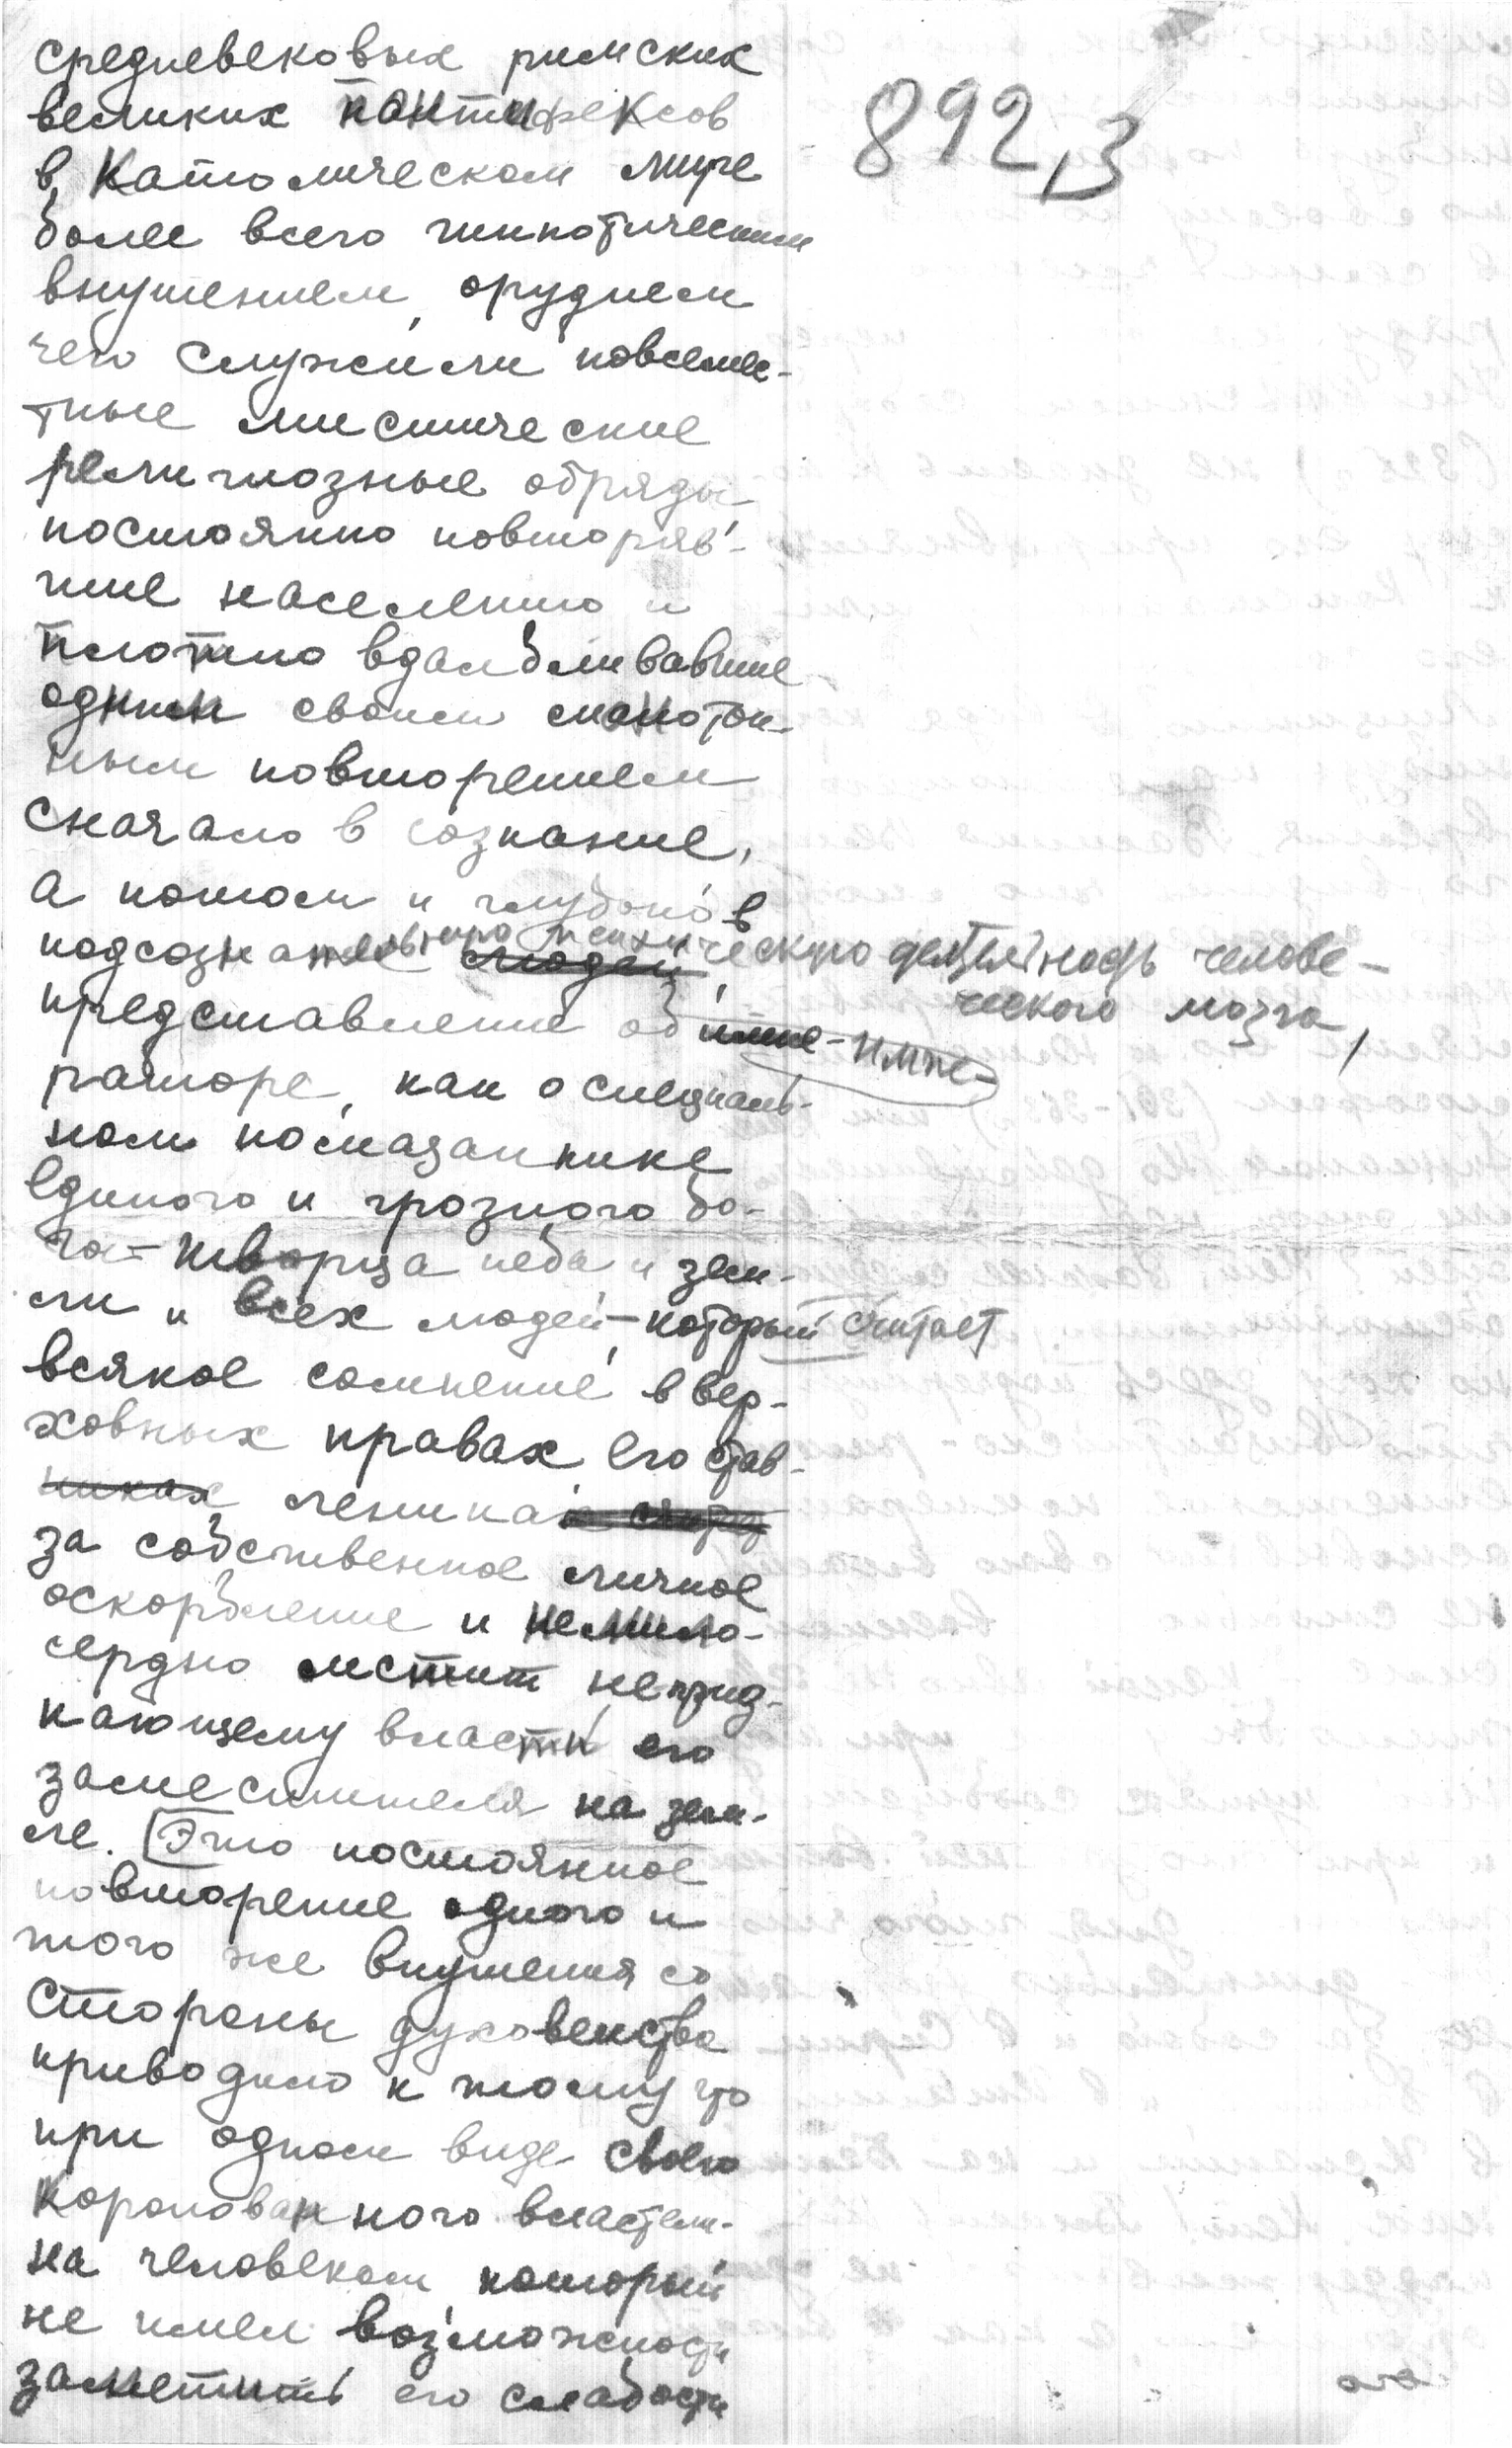 892,3
средневековых римских
великих понтифексов
в Католическом мире
более всего гипнотическим
внушением, орудием
чего служили повсемес-
тные мистические
религиозные обряды,
постоянно повторяв-
шие населению и
плотно вдалбливавшие
одним своим монотон-
ным повторением
сначало в сознание,
а потом и глубоко в
подсознательную психическую деятельность челове-
ческого мозга,
представление об импе-
раторе, как о специаль-
ном помазаннике
единого и грозного бо-
га-творца неба и зем-
ли и всех людей, который считает
всякое сомнение в вер-
ховных правах его став-
ленника
за собственное личное
оскорбление и немило-
сердно мстит неприз-
нающему власти его
заместителя на зем-
ле. [Это постоянное
повторение одного и
того же внушения со
стороны духовенства
приводило к тому что
при одном виде своего
коронованного властели-
на человеком, который
не имел возможности
заметить его слабости